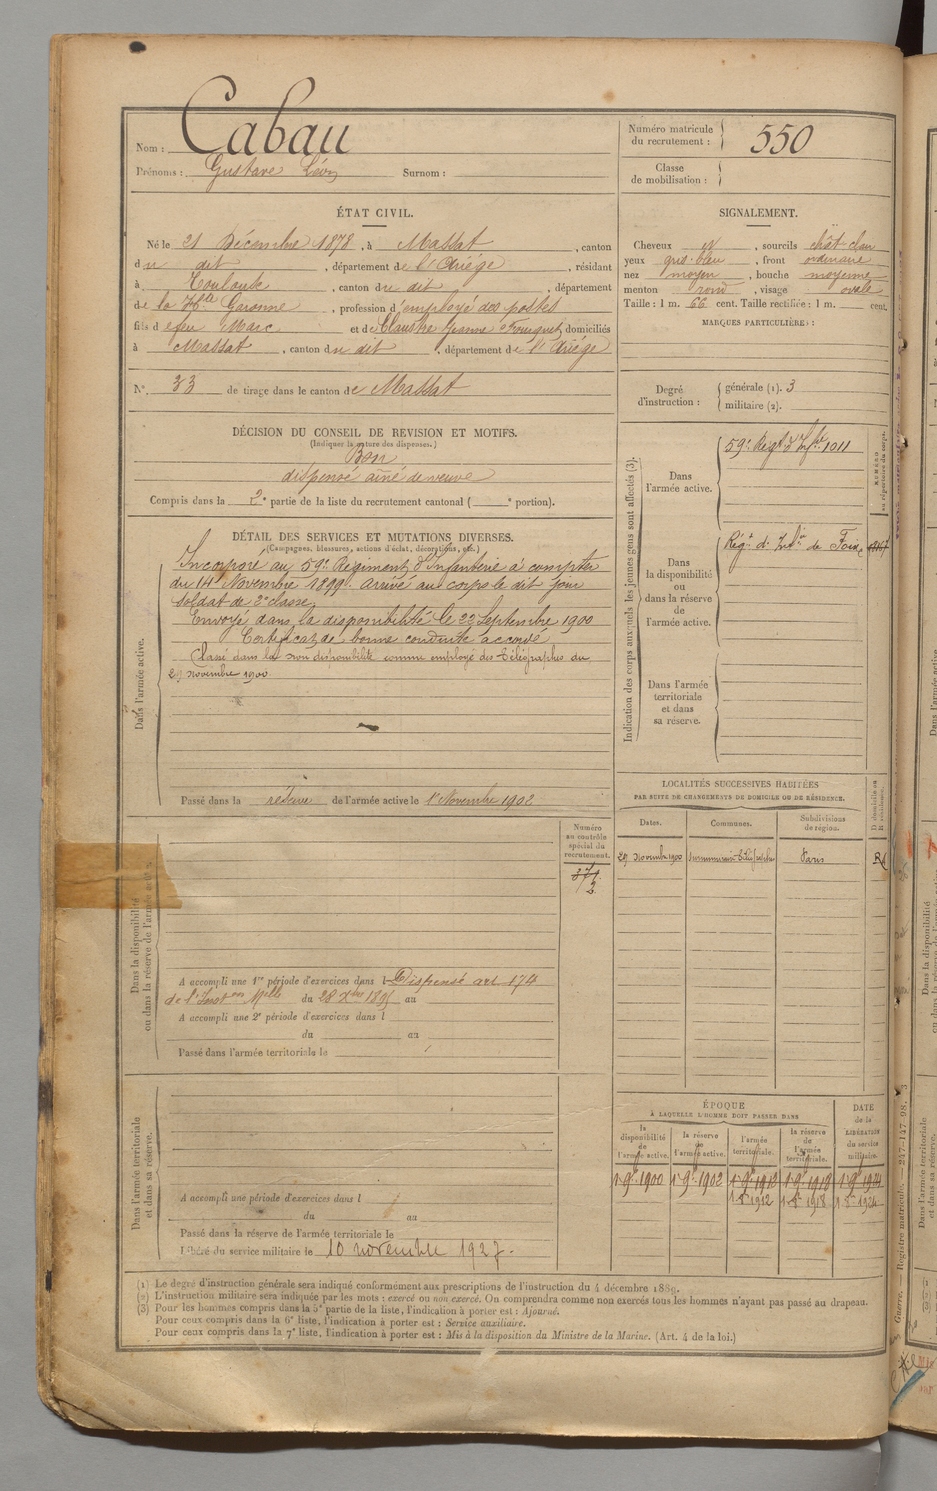 Nom : Cabau
Prénoms : Gustave Léon Surnom :
Numéro matricule du recrutement : 550
Classe de mobilisation :
ÉTAT CIVIL.
Né le 21 Décembre 1878, à Massat, canton
du dit, département de l'Ariége, résidant
à Toulouse, canton du dit, département
de la Hte Garonne, profession d'employé des postes
fils de feu Marc et de Claustre Jeanne Fouquet, domiciliés
à Massat, canton du dit, département de l'Ariége
N° 33 de tirage dans le canton de Massat
SIGNALEMENT.
Cheveux , sourcils chât-clair
yeux gris-bleu, front ordinaire
nez moyen, bouche moyenne
menton rond, visage ovale
Taille : 1 m. 66 cent. Taille rectifiée : 1 m. cent.
MARQUES PARTICULIÈRES :
Degré d'instruction : générale (1). 3
militaire (2).
DÉCISION DU CONSEIL DE REVISION ET MOTIFS.
(Indiquer la nature des dispenses.)
Bon
dispensé aîné de veuve
Compris dans la 2e partie de la liste du recrutement cantonal ( e portion).
DÉTAIL DES SERVICES ET MUTATIONS DIVERSES.
(Campagnes, blessures, actions d'éclat, décorations, etc.)
Dans l'armée active.
Incorporé au 59e Régiment d'Infanterie à compter
du 14 Novembre 1899. arrivé au corps le dit jour
soldat de 2e classe.
Envoyé dans la disponibilité le 22 Septembre 1900
Certificat de bonne conduite accordé
Classé dans la non disponibilité comme employé des télégraphes du
29 novembre 1900
Passé dans la réserve de l'armée active le 1er Novembre 1902
Indication des corps auxquels les jeunes gens sont affectés (3).
Dans l'armée active.
59e Régt d'Infie 1011
NUMÉRO au répertoire du corps.
Dans la disponibilité ou dans la réserve de l'armée active.
Régt d'Infie de Foix
Dans l'armée territoriale et dans sa réserve.
LOCALITÉS SUCCESSIVES HABITÉES
PAR SUITE DE CHANGEMENTS DE DOMICILE OU DE RÉSIDENCE.
Dates. Communes. Subdivisions de région. D domicile ou R résidence.
29 novembre 1900 Paris R
Dans la disponibilité ou dans la réserve de l'armée active.
Numéro au contrôle spécial du recrutement.
A accompli une 1re période d'exercices dans l Dispensé art 174
de l'Instron Mlle du 28 Xbre 1895 au
A accompli une 2e période d'exercices dans l
du au
Passé dans l'armée territoriale le
Dans l'armée territoriale et dans sa réserve.
A accompli une période d'exercices dans l
du au
Passé dans la réserve de l'armée territoriale le
Libéré du service militaire le 10 novembre 1927.
ÉPOQUE
À LAQUELLE L'HOMME DOIT PASSER DANS
la disponibilité de l'armée active. la réserve de l'armée active. l'armée territoriale. la réserve de l'armée territoriale. DATE de la LIBÉRATION du service militaire.
1er 9bre 1900 1er 9bre 1902 1er 9bre 1912 1er 9bre 1918 1er 9bre 1924
1er 8bre 1912 1er 8bre 1918 1er 8bre 1924
(1) Le degré d'instruction générale sera indiqué conformément aux prescriptions de l'instruction du 4 décembre 1889.
(2) L'instruction militaire sera indiquée par les mots : exercé ou non exercé. On comprendra comme non exercés tous les hommes n'ayant pas passé au drapeau.
(3) Pour les hommes compris dans la 5e partie de la liste, l'indication à porter est : Ajourné.
Pour ceux compris dans la 6e liste, l'indication à porter est : Service auxiliaire.
Pour ceux compris dans la 7e liste, l'indication à porter est : Mis à la disposition du Ministre de la Marine. (Art. 4 de la loi.)